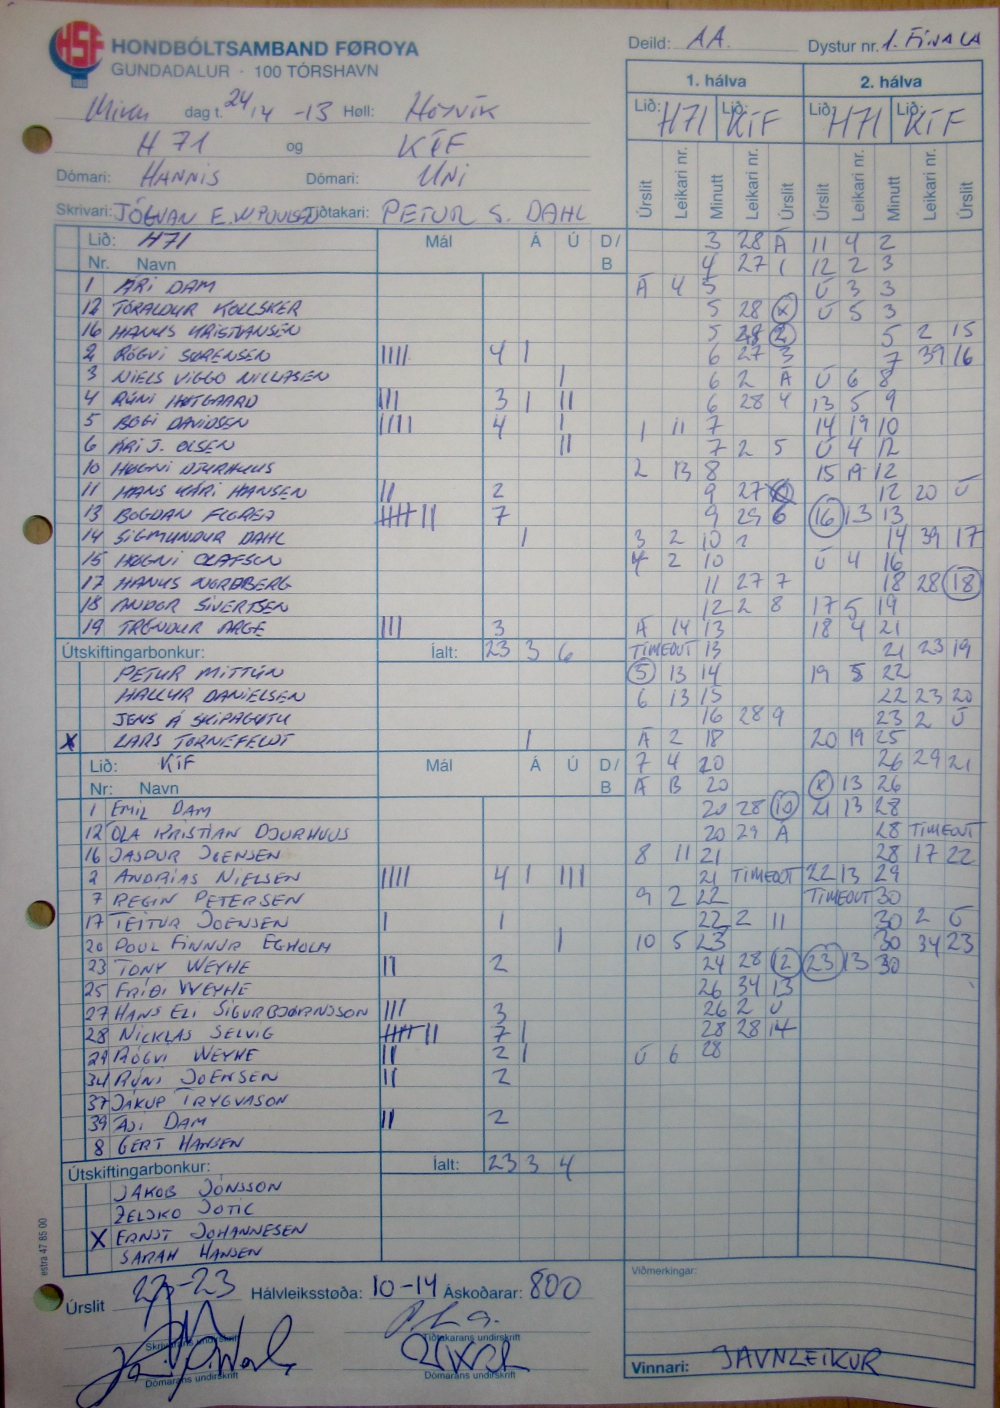 HSF HONDBÓLTSAMBAND FØROYA
GUNDADALUR · 100 TÓRSHAVN
Deild: AA. Dystur nr. 1. FINALA
Miku dag t. 24/4 -13 Høll: HOYVÍK
H71 og KÍF
Dómari: HANNIS Dómari: UNI
Skrivari: JÓGVAN E. W POULSEN Tíðtakari: PETUR S. DAHL
Lið: H71 Mál Á Ú D/B
Nr. Navn
1 ÁRI DAM
12 TÓRALDUR KOLLSKER
16 HANUS KRISTIANSEN
2 RÓGVI SØRENSEN IIII 4 I
3 NIELS VIGGO NICLASEN I
4 RÚNI HØTGAARD III 3 I II
5 BOGI DAVIDSEN IIII 4 I
6 ÁRI J. OLSEN II
10 HØGNI DJURHUUS
11 HANS KÁRI HANSEN II 2
13 BOGDAN FLOREA IIIII II 7
14 SIGMUNDUR DAHL I
15 HØGNI OLAFSON
17 HANUS NORDBERG
18 ANDOR SIVERTSEN
19 TRÓNDUR ARGE III 3
Útskiftingarbonkur: Íalt: 23 3 6
PETUR MITTÚN
HALLUR DANIELSEN
JENS Á SKIPAGØTU
X LARS TORNEFELDT I
Lið: KÍF Mál Á Ú D/B
Nr: Navn
1 EMIL DAM
12 OLA KRISTIAN DJURHUUS
16 JASPUR JOENSEN
2 ANDRIAS NIELSEN IIII 4 I III
7 REGIN PETERSEN
17 TEITUR JOENSEN I 1
20 POUL FINNUR EGHOLM I
23 TONY WEYHE II 2
25 FRÍÐI WEYHE
27 HANS ELI SIGURBJØRNSSON III 3
28 NICKLAS SELVIG IIIII II 7 I
29 RÓGVI WEYHE II 2 I
34 RÚNI JOENSEN II 2
37 JÁKUP TRYGVASON
39 ÁJI DAM II 2
8 GERT HANSEN
Útskiftingarbonkur: Íalt: 23 3 4
JÁKOB JÓNSSON
ZELJKO JOTIC
X ERNST JOHANNESEN
SARAH HANSEN
Úrslit 23-23 Hálvleiksstøða: 10-14 Áskoðarar: 800
Skrivarans undirskrift Tíðtakarans undirskrift
Dómarans undirskrift Dómarans undirskrift
estra 47 85 00
1. hálva 2. hálva
Lið: H71 Lið: KÍF Lið: H71 Lið: KÍF
Úrslit Leikari nr. Minutt Leikari nr. Úrslit Úrslit Leikari nr. Minutt Leikari nr. Úrslit
3 28 Á 11 4 2
4 27 1 12 2 3
Á 4 5 Ú 3 3
5 28 X Ú 5 3
5 28 2 5 2 15
6 27 3 7 39 16
6 2 Á Ú 6 8
6 28 4 13 5 9
1 11 7 14 19 10
7 2 5 Ú 4 12
2 13 8 15 19 12
9 27 12 20 Ú
9 29 6 16 13 13
3 2 10 14 39 17
4 2 10 Ú 4 16
11 27 7 18 28 18
12 2 8 17 5 19
Á 14 13 18 4 21
TIMEOUT 13 21 23 19
5 13 14 19 5 22
6 13 15 22 23 20
16 28 9 23 2 Ú
Á 2 18 20 19 25
7 4 20 26 29 21
Á B 20 X 13 26
20 28 10 21 13 28
20 29 Á 28 TIMEOUT
8 11 21 28 17 22
21 TIMEOUT 22 13 29
9 2 22 TIMEOUT 30
22 2 11 30 2 Ú
10 5 23 30 34 23
24 28 12 23 13 30
26 34 13
26 2 Ú
28 28 14
Ú 6 28
Viðmerkingar:
Vinnari: JAVNLEIKUR